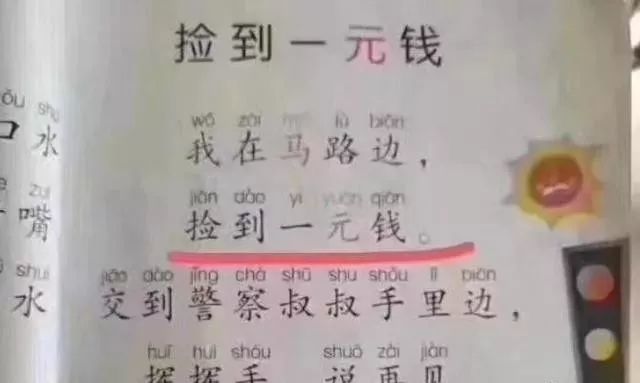 捡到一元钱
wǒ zài mǎ lù biān
我在马路边，
jiǎn dào yì yuán qián
捡到一元钱。
jiāo dào jǐng chá shū shu shǒu lǐ biān
交到警察叔叔手里边，
huī huī shǒu shuō zài jiàn
挥挥手 说再见
ǒu shuǐ
口水
zuǐ
嘴
shuǐ
水